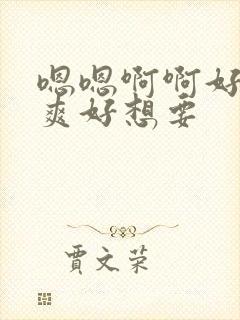 嗯嗯啊啊好
爽好想要
贾文荣